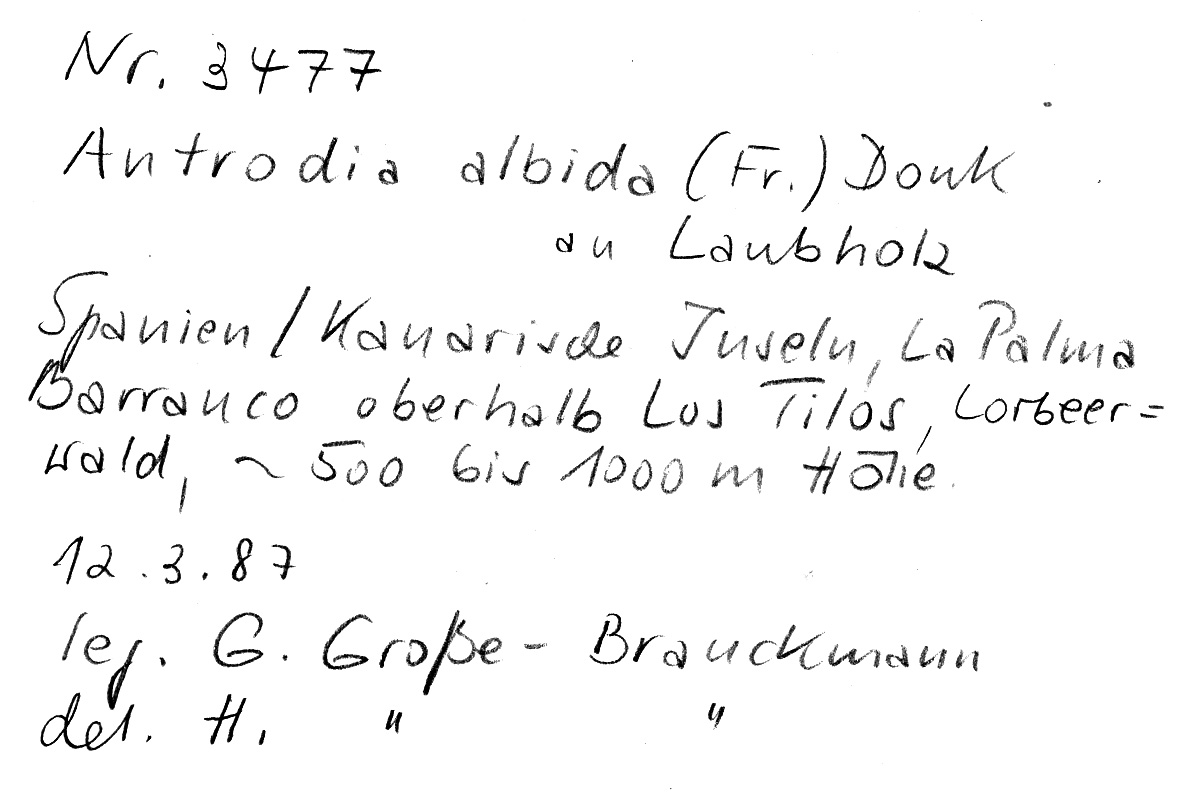 Nr. 3477
Antrodia albida (Fr.) Donk
an Laubholz
Spanien/Kanarische Inseln, La Palma
Barranco oberhalb Los Tilos, Lorbeer=
wald, ~ 500 bis 1000 m Höhe.
12.3.87
leg. G. Große-Brauckmann
det. H. " "